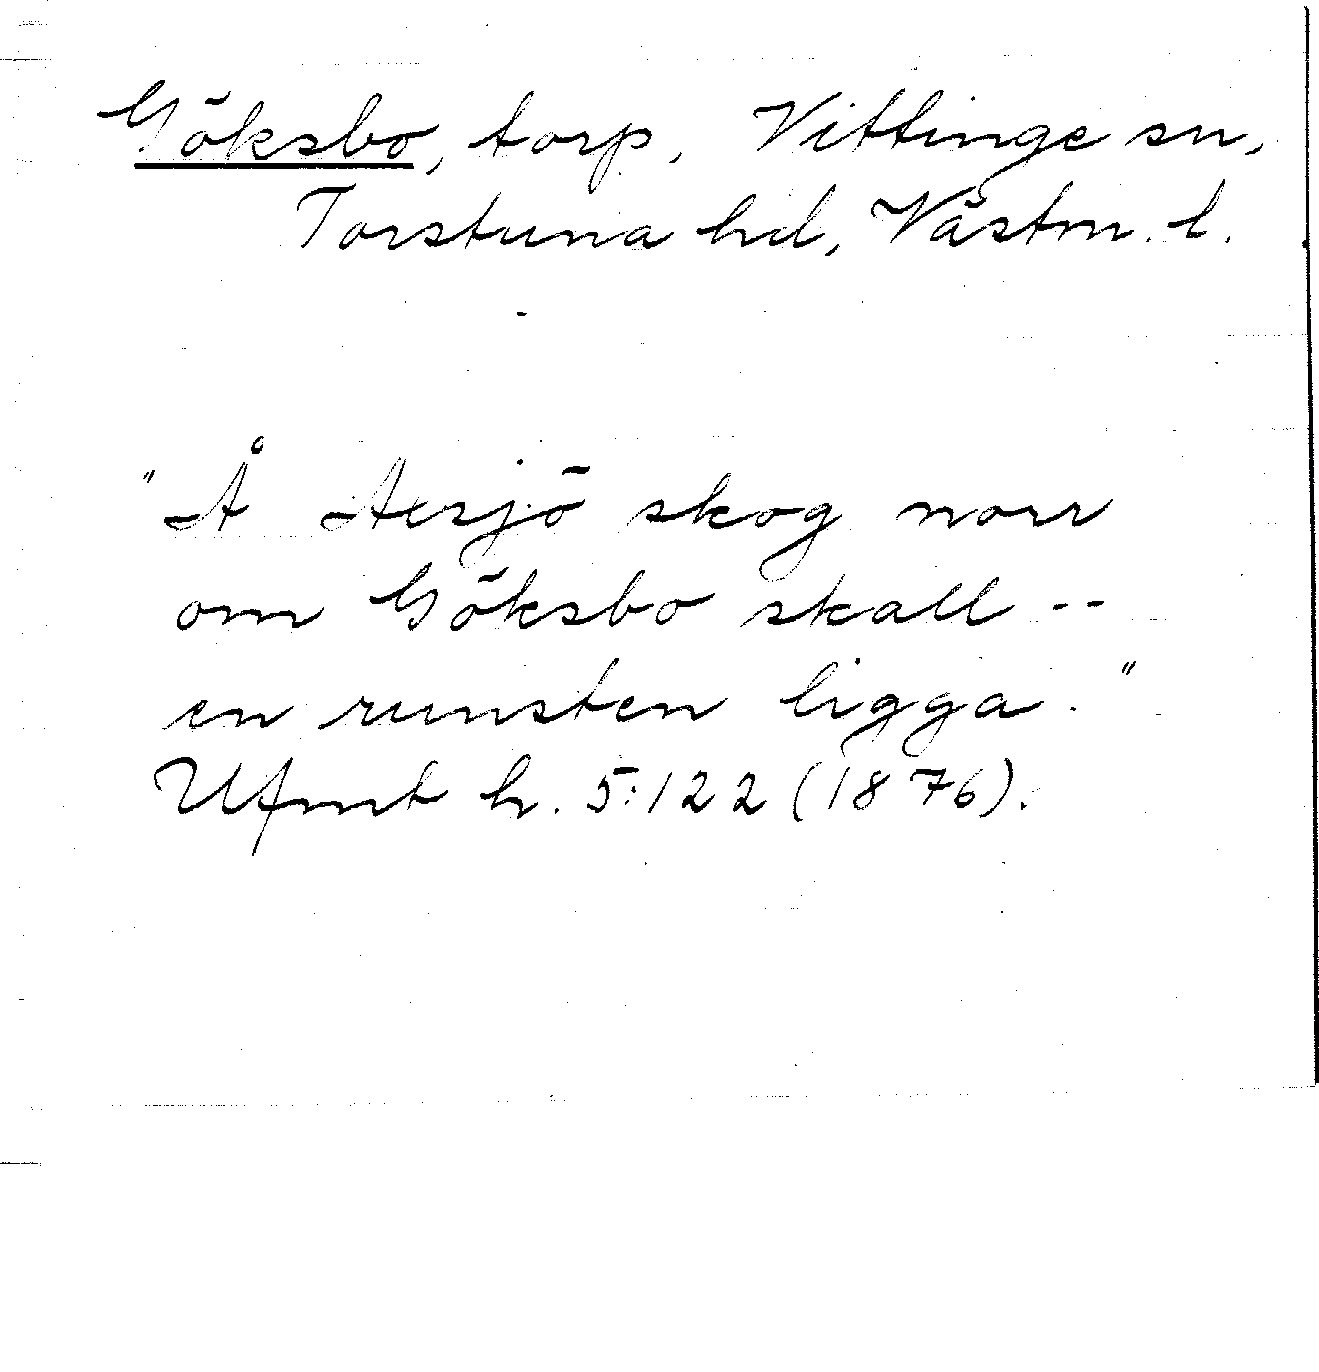 Göksbo, torp, Vittinge sn,
Torstuna hd, Västm. l.
"Å Aersjö skog norr
om Göksbo skall --
en runsten ligga."
Ufmt h. 5:122 (1876).